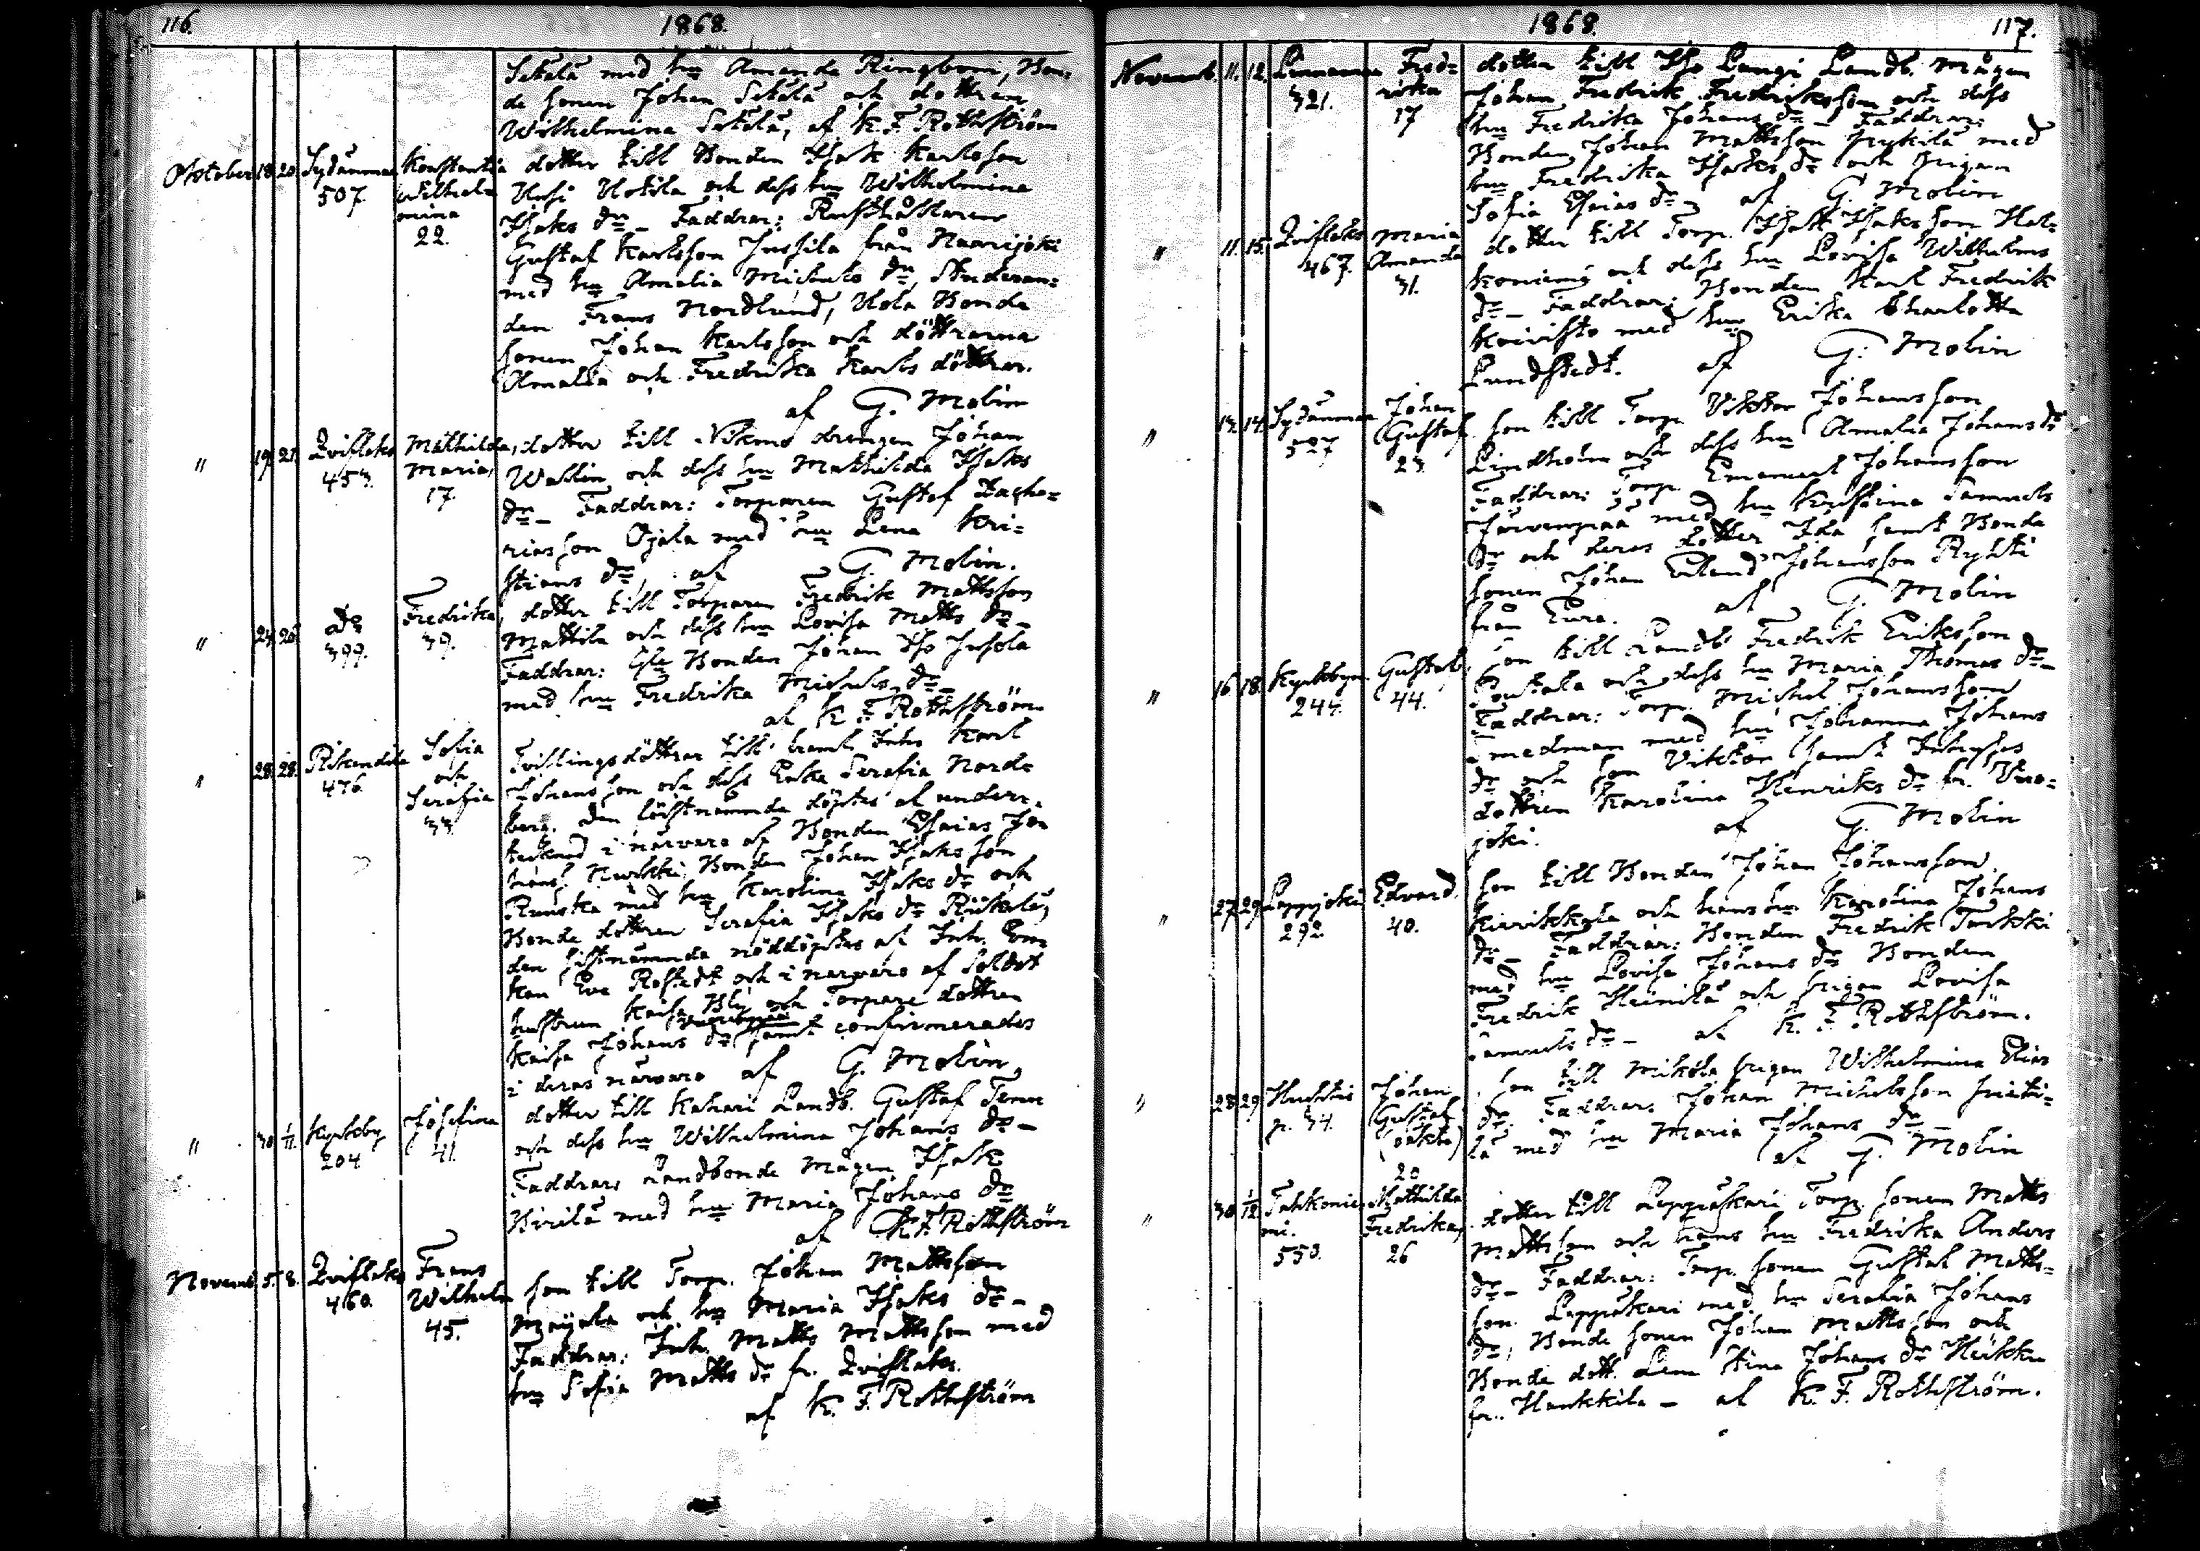 116.
1868.
Sikilä med hu Amanda Ringbom, Bon-
de sonen Johan Sikilä och dottren
Wilhelmina Sikilä, af K. F. Rothström
October 18 20 Sydänmaa 507. Konstantia Wilhelmina 22.
dotter till Bonden Isak Karlsson
Uusi Uotila och dess hu Wilhelmina
Isaks dr – Faddrar: Rusthållaren
Gustaf Karlsson Jussila från Naarijoki
med hu Amalia Michels dr, Studeran-
den Frans Nordlund, Uola Bonde
sonen Johan Karlsson och döttrarna
Amalia och Fredrika Karls döttrar.
af G. Molin
" 19 21 Qvislaks 453. Mathilda Maria, 17.
dotter till drengen Johan
Wallin och dess hu Mathilda Isaks
dr – Faddrar: Torparen Gustaf Zacha-
riasson Ojala med hu Lena Kri-
stians dr, af G. Molin.
" 24 26 do 399. Fredrika 39.
dotter till Torparen Fredrik Mattsson
Mattila och dess hu Lovisa Matts dr –
Faddrar: Bonden Johan Iso
med hu Fredrika Michels dr –
af K. F. Rothström
" 28 28 476. Sofia och Serafia 33.
Tvillingsdöttrar till framl. Inhs Karl
Johansson och dess Enka Serafia Nord-
berg. Den förstnämnda döptes af under-
tecknad i närvaro af Bonden Esaias Jo-
hans. Bonden Johan Isaksson
med hu Karolina Isaks dr och
Bonde dottren Serafia Isaks dr
den sistnämnda nöddöptes af Inh. En-
kan Eva Rostedt och i närvaro af Soldat
hustrun Kaisa Bly och Torpare dottren
Kaisa Johans dr samt confirmerades
i deras närvaro af G. Molin,
" 30 1/11 Kyrkoby 204 Josefina 41.
dotter till Kahari Landb. Gustaf
och dess hu Wilhelmina Johans dr –
Faddrar: Landbonde mågen Isak
med hu Maria Johans dr
af K. F. Rothström
Novemb. 5. 8. Qvislaks 460. Frans Wilhelm 45.
son till Torp. Johan Mattsson
och hu Maria Isaks dr –
Faddrar: Inh. Matts Mattsson med
hu Sofia Matts dr fr. Qvislaks.
af K. F. Rothström
1868.
117.
Novemb. 11. 12. 321. Fredrika 17
dotter till Iso Landb. mågen
Johan Fredrik Fredriksson och dess
hu Fredrika Johans dr – Faddrar:
Bonden Johan Mattsson med
hu Fredrika Isaks dr och pigan
Sofia Esaias dr – af G. Molin
" 11. 15. Qvislaks 467. Maria Amanda 31.
dotter till Torp. Isak Isaksson Hal-
koniemi och dess hu Lovisa Wilhelms
dr – Faddrar: Bonden Karl Fredrik
Koivisto med hu Erika Charlotta
Lundstedt. af G. Molin
" 13. 14. Sydänmaa 527 Johan Gustaf 23.
son till Torp. Viktor Johansson
Lindholm och dess hu Amalia Johans dr
Faddrar: Torp. Emanuel Johansson
Järvenpää med hu Kristina Samuels
dr och deras dotter Ida samt Bonde
sonen Johan Erland Johansson
från Eura. af G. Molin
" 16 18. Kyrkobyn 244. Gustaf 44.
son till Landb. Fredrik Eriksson
och dess hu Maria Thomas dr –
Faddrar: Torp. Michel Johansson
med hu Johanna Johans
dr och son Viktor samt Inhyses
dottren Karolina Henriks dr fr. Vuo-
joki. af G. Molin
" 27 29 Lappijoki 292. Edvard. 40.
son till Bonden Johan Johansson
Kivikkola och hans hu Karolina Johans
dr – Faddrar: Bonden Fredrik Turkki
med hu Lovisa Johans dr Bonden
Fredrik Heinilä och pigan Lovisa
Samuels dr – af K. F. Rothström.
" 28 29 Huhtis p. 34. Johan Gustaf (oäkta) 20
son till Mikola pigan Wilhelmina Elias
dr. Faddrar: Johan Michelsson
lä med hu Maria Johans dr –
af G. Molin
" 30 1/12 Tahkonie- mi. 550. Mathilda Fredrika, 26
dotter till Leppäkari Torp. sonen Matts
Mattsson och hans hu Fredrika Anders
dr – Faddrar: Torp. sonen Gustaf Matts-
son Leppäkari med hu Serafia Johans
dr, Bonde sonen Johan Mattsson och
Bonde dott. Lena Stina Johans dr Heikku
fr. Hankkila – af K. F. Rothström.